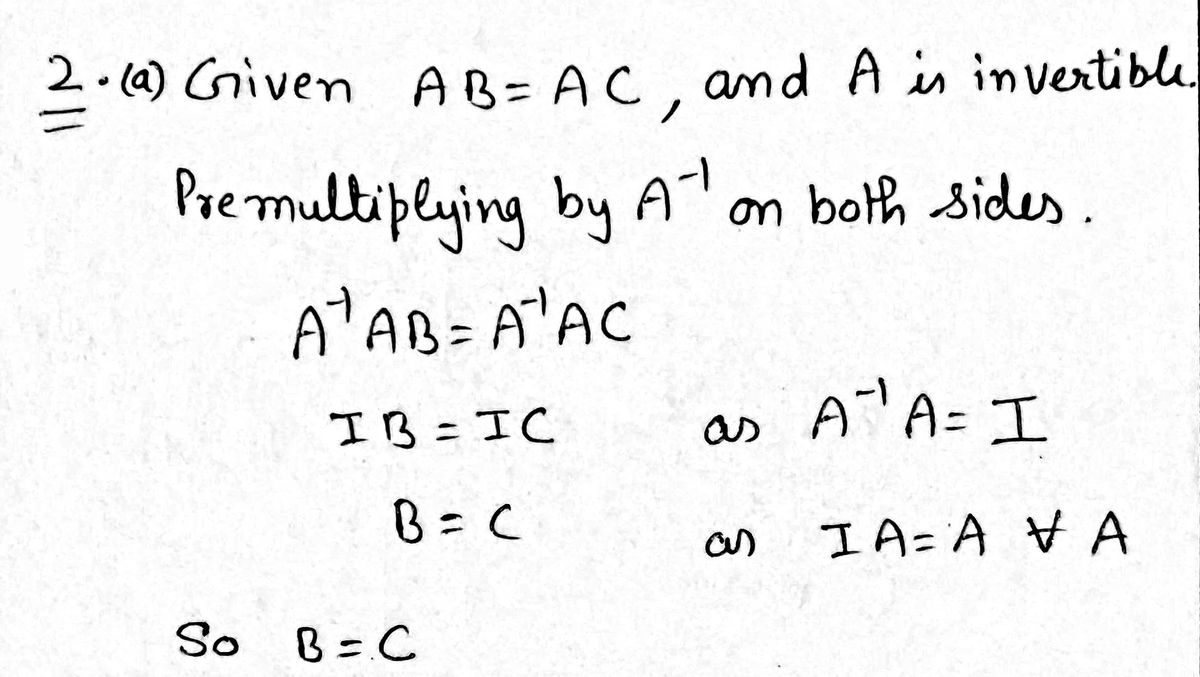 2.(a) Given AB = AC, and A is invertible.
Premultiplying by A⁻¹ on both sides.
A⁻¹AB = A⁻¹AC
IB = IC as A⁻¹A = I
B = C as IA = A ∀ A
So B = C